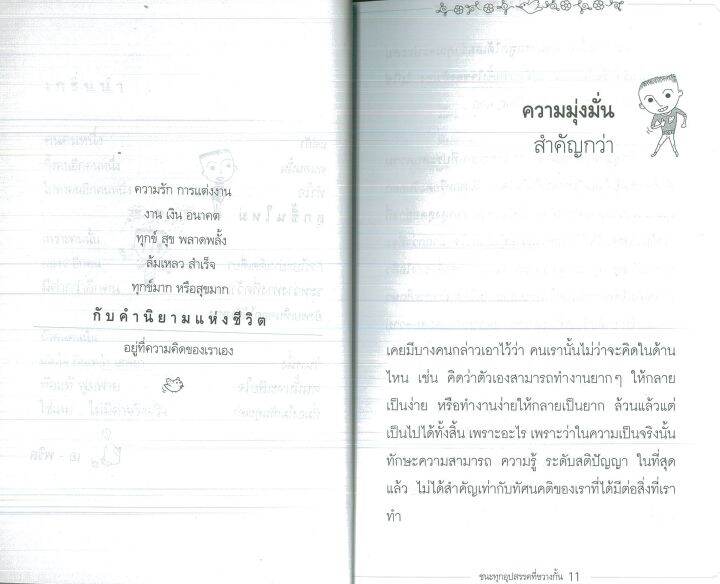 ความรัก การแต่งงาน
งาน เงิน อนาคต
ทุกข์ สุข พลาดพลั้ง
ล้มเหลว สำเร็จ
ทุกข์มาก หรือสุขมาก
กับคำนิยามแห่งชีวิต
อยู่ที่ความคิดของเราเอง
ความมุ่งมั่น
สำคัญกว่า
เคยมีบางคนกล่าวเอาไว้ว่า คนเรานั้นไม่ว่าจะคิดในด้าน
ไหน เช่น คิดว่าตัวเองสามารถทำงานยากๆ ให้กลาย
เป็นง่าย หรือทำงานง่ายให้กลายเป็นยาก ล้วนแล้วแต่
เป็นไปได้ทั้งสิ้น เพราะอะไร เพราะว่าในความเป็นจริงนั้น
ทักษะความสามารถ ความรู้ ระดับสติปัญญา ในที่สุด
แล้ว ไม่ได้สำคัญเท่ากับทัศนคติของเราที่ได้มีต่อสิ่งที่เรา
ทำ
ชนะทุกอุปสรรคที่ขวางกั้น 11